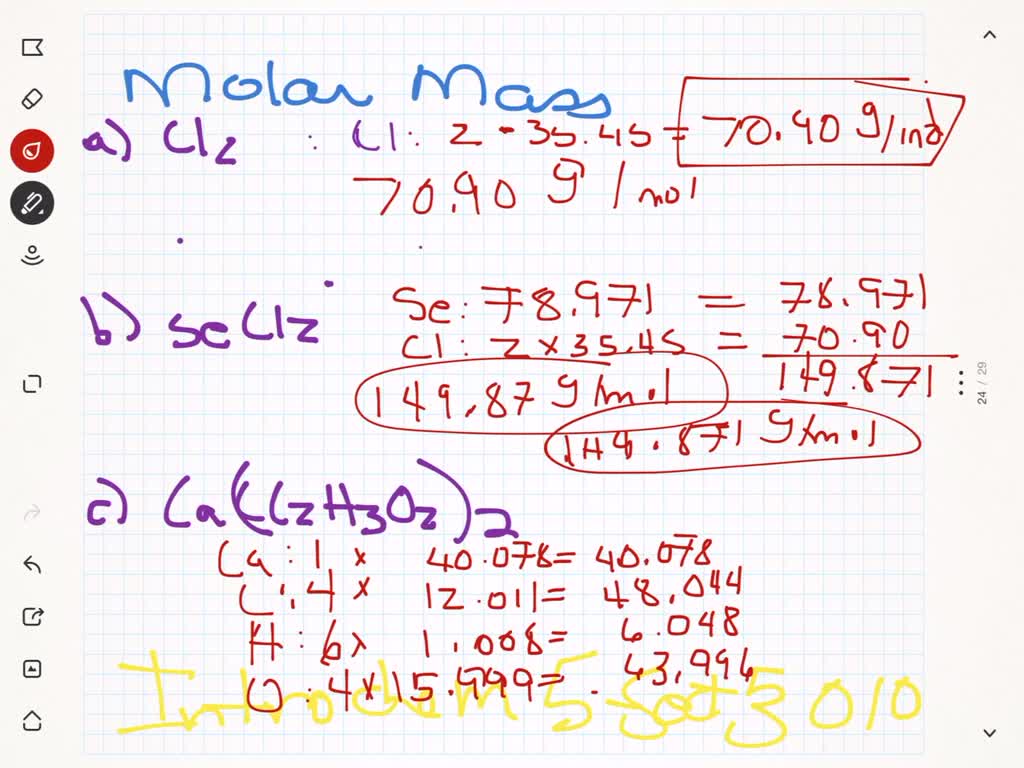 Molar Mass
a) Cl2 : Cl: 2 · 35.45 = 70.90 g/mol
70.90 g/mol
b) SeCl2
Se: 78.971 = 78.971
Cl: 2 × 35.45 = 70.90
149.871
149.87 g/mol
149.871 g/mol
c) Ca(C2H3O2)2
Ca: 1 × 40.078 = 40.078
C: 4 × 12.011 = 48.044
H: 6 × 1.008 = 6.048
O: 4 × 15.999 = 63.996
Introchem 5
24 / 29